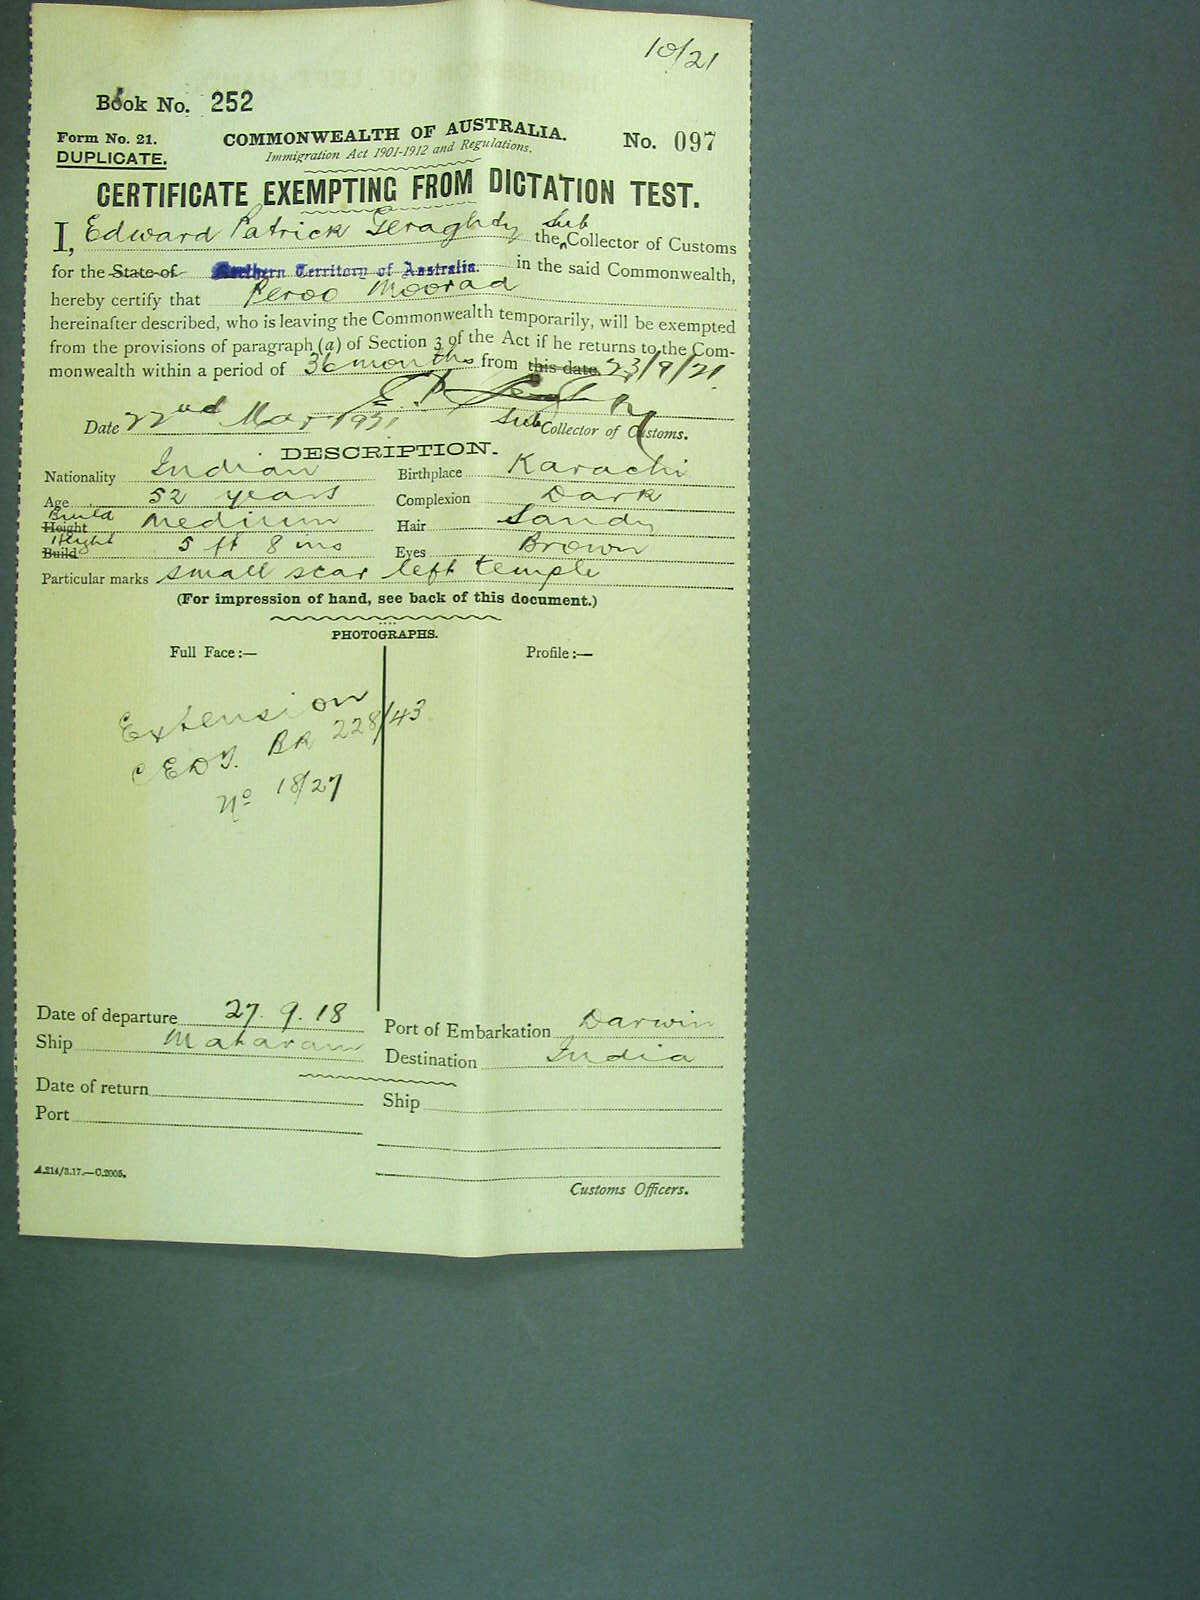 10/21
Book No. 252
Form No. 21. COMMONWEALTH OF AUSTRALIA. No. 097
DUPLICATE. Immigration Act 1901-1912 and Regulations.
CERTIFICATE EXEMPTING FROM DICTATION TEST.
I, Edward Patrick Geraghty the Sub Collector of Customs
for the State of Northern Territory of Australia. in the said Commonwealth,
hereby certify that Peroo Moorad
hereinafter described, who is leaving the Commonwealth temporarily, will be exempted
from the provisions of paragraph (a) of Section 3 of the Act if he returns to the Com-
monwealth within a period of 36 months from this date. 23/9/21.
Date 22nd Mar 1921 Sub Collector of Customs.
DESCRIPTION.
Nationality Indian Birthplace Karachi
Age 52 years Complexion Dark
Build
Height Medium Hair Sandy
Height
Build 5 ft 8 ins Eyes Brown
Particular marks small scar left temple
(For impression of hand, see back of this document.)
PHOTOGRAPHS.
Full Face:— Profile:—
Extension
CEDT. BK 228/43
No 18/27
Date of departure 27.9.18 Port of Embarkation Darwin
Ship Mataram Destination India
Date of return Ship
Port
A.214/3.17.—C.2005.
Customs Officers.